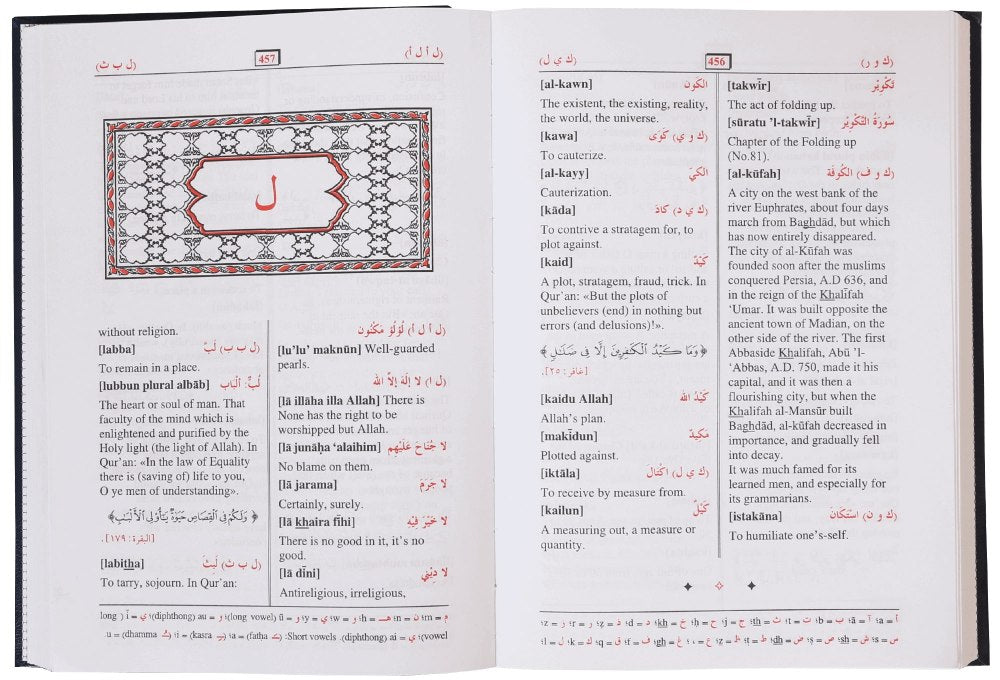 (ك و ر) 456 (ك ي ل)
[takwīr] تَكْوِيْر
The act of folding up.
[sūratu 'l-takwīr] سُورَةُ التَّكْوِيْر
Chapter of the Folding up
(No.81).
[al-kūfah] (ك و ف) الْكُوفَة
A city on the west bank of the
river Euphrates, about four days
march from Baghdād, but which
has now entirely disappeared.
The city of al-Kūfah was
founded soon after the muslims
conquered Persia, A.D 636, and
in the reign of the Khalīfah
‘Umar. It was built opposite the
ancient town of Madian, on the
other side of the river. The first
Abbaside Khalīfah, Abū 'l-
‘Abbas, A.D. 750, made it his
capital, and it was then a
flourishing city, but when the
Khalifah al-Mansūr built
Baghdād, al-kūfah decreased in
importance, and gradually fell
into decay.
It was much famed for its
learned men, and especially for
its grammarians.
[istakāna] (ك و ن) اسْتَكَانَ
To humiliate one's-self.
[al-kawn] الكَون
The existent, the existing, reality,
the world, the universe.
[kawa] (ك و ي) كَوَى
To cauterize.
[al-kayy] الكَيّ
Cauterization.
[kāda] (ك ي د) كَادَ
To contrive a stratagem for, to
plot against.
[kaid] كَيْدٌ
A plot, stratagem, fraud, trick. In
Qur'an: «But the plots of
unbelievers (end) in nothing but
errors (and delusions)!».
﴿وَمَا كَيْدُ الْكَٰفِرِينَ إِلَّا فِى ضَلَٰلٍ﴾
[غافر: ٢٥].
[kaidu Allah] كَيْدُ الله
Allah's plan.
[makīdun] مَكِيدٌ
Plotted against.
[iktāla] (ك ي ل) اكْتَالَ
To receive by measure from.
[kailun] كَيْلٌ
A measuring out, a measure or
quantity.
أ=a ؛ آ=ā ؛ ب=b ؛ ت=t ؛ ث=th ؛ ج=j ؛ ح=ḥ ؛ خ=kh ؛ د=d ؛ ذ=ẓ ؛ ر=r ؛ ز=z
س=s ؛ ش=sh ؛ ص=ṣ ؛ ض=dh ؛ ط=ṭ ؛ ظ=ẓ ؛ ع=‘ ؛ غ=gh ؛ ف=f ؛ ق=q ؛ ك=k ؛ ل=l
(ل أ ل أ) 457 (ل ب ث)
ل
(ل أ ل أ) لُؤْلُؤ مَكْنُون
[lu'lu' maknūn] Well-guarded
pearls.
(ل ا) لا إلَهَ إلاَّ الله
[lā illāha illa Allah] There is
None has the right to be
worshipped but Allah.
[lā junāḥa ‘alaihim] لا جُنَاحَ عَلَيْهِم
No blame on them.
[lā jarama] لا جَرَمَ
Certainly, surely.
[lā khaira fīhi] لا خَيْرَ فِيْهِ
There is no good in it, it's no
good.
[lā dīni] لا دِيْنِي
Antireligious, irreligious,
without religion.
[labba] (ل ب ب) لَبَّ
To remain in a place.
[lubbun plural albāb] لُبٌّ: أَلْبَاب
The heart or soul of man. That
faculty of the mind which is
enlightened and purified by the
Holy light (the light of Allah). In
Qur'an: «In the law of Equality
there is (saving of) life to you,
O ye men of understanding».
﴿وَلَكُمْ فِى الْقِصَاصِ حَيَوٰةٌ يَٰٓأُولِى الْأَلْبَٰبِ﴾
[البقرة: ١٧٩].
[labitha] (ل ب ث) لَبِثَ
To tarry, sojourn. In Qur'an:
م=m ؛ ن=n ؛ هـ=h ؛ و=w ؛ ي=y ؛ و=ū (long vowel) ؛ و=au (diphthong) ؛ ي=ī (long
vowel) ؛ ي=ai (diphthong). Short vowels: (fatḥa) =a ؛ (kasra) =i ؛ (dhamma) =u